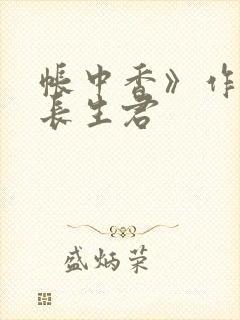 帐中香》作
长生君
盛炳荣